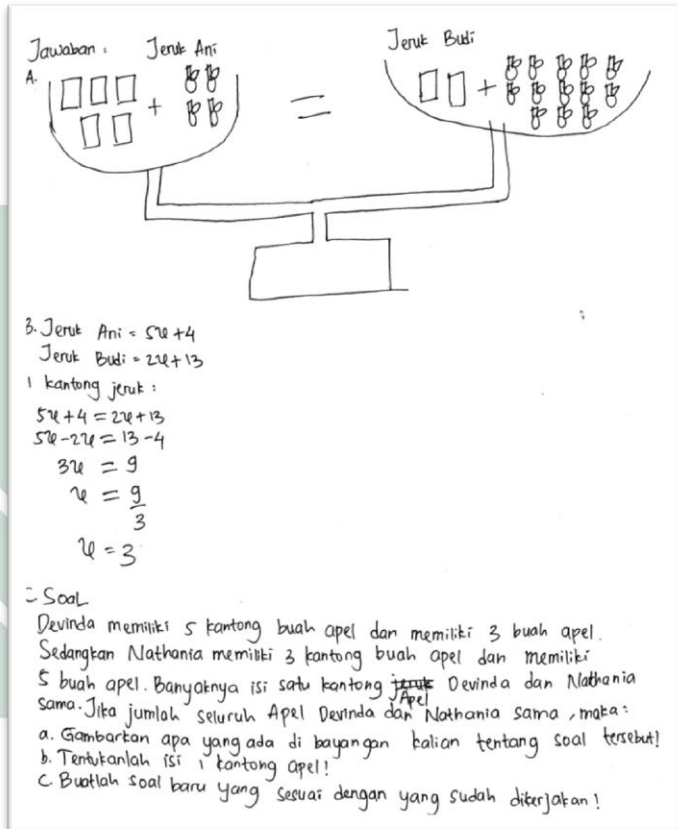 Jawaban : Jeruk Ani Jeruk Budi
A.
+ = +
B. Jeruk Ani = 5x+4
Jeruk Budi = 2x+13
1 kantong jeruk :
5x+4 = 2x+13
5x-2x = 13-4
3x = 9
x = 9/3
x = 3
= Soal
Devinda memiliki 5 kantong buah apel dan memiliki 3 buah apel.
Sedangkan Nathania memiliki 3 kantong buah apel dan memiliki
5 buah apel. Banyaknya isi satu kantong Apel Devinda dan Nathania
sama. Jika jumlah seluruh Apel Devinda dan Nathania sama, maka:
a. Gambarkan apa yang ada di bayangan kalian tentang soal tersebut!
b. Tentukanlah isi 1 kantong apel!
C. Buatlah soal baru yang sesuai dengan yang sudah dikerjakan!